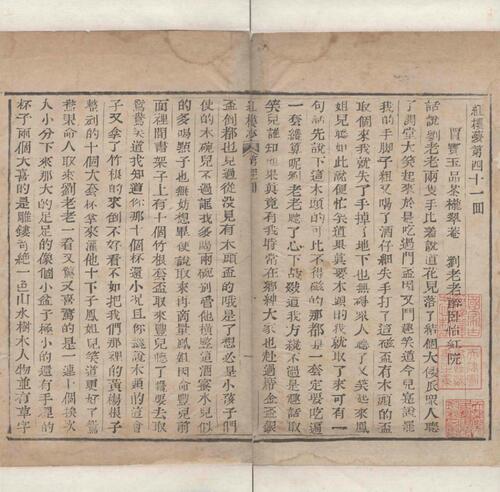 紅樓夢第四十一回
賈寶玉品茶櫳翠庵　劉老老醉臥怡紅院
話說劉老老兩隻手比着說道花兒落了結個大倭瓜眾人聽
了鬨堂大笑起來於是吃過門盃因又鬥趣笑道今兒寔說罷
我的手脚子粗又喝了酒仔細失手打了這磁盃有木頭的盃
取個來我就失了手掉了地下也無碍眾人聽了又笑起來鳳
姐兒聽如此說便忙笑道果真要木頭的我就取了來可有一
句話先說下這木頭的可比不得磁的那都是一套定要吃遍
一套纔算呢劉老老聽了心下敁敠道我方纔不過是趣話取
笑兒誰知他果真竟有我時常在鄉紳大家也赴過席金盃銀
紅樓夢
盃倒都也見過從沒見有木頭盃的哦是了想必是小孩子們
使的木碗兒不過誆我多喝兩碗别管他橫豎這酒蜜水兒似
的多喝點子也無妨想畢便說取來再商量鳳姐因命豐兒前
面裡間書架子上有十個竹根套盃取來豐兒聽了纔要去取
鴛鴦笑道我知道你那十個盃還小况且你纔說木頭的這會
子又拿了竹根的來倒不好看不如把我們那裡的黃楊根子
整刓的十個大套杯拿來灌他十下子鳳姐兒笑道更好了鴛
鴦果命人取來劉老老一看又驚又喜驚的是一連十個挨次
大小分下來那大的足足的像個小盆子極小的還有手裡的
杯子兩個大喜的是雕鏤奇絕一色山水樹木人物並有草字